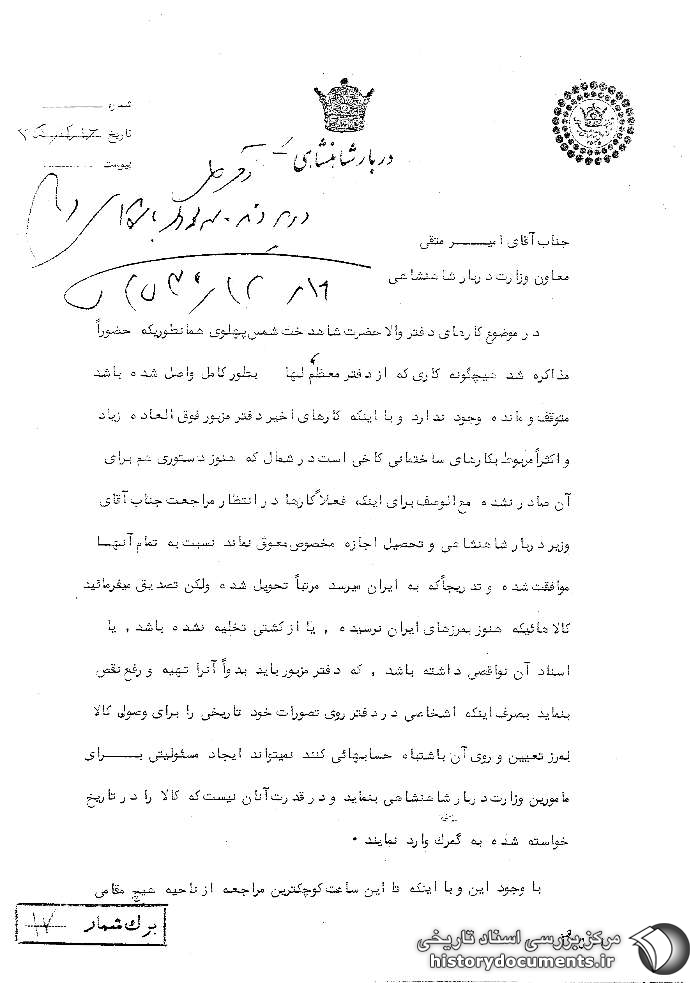 شماره
تاریخ
پیوست
دربار شاهنشاهی
جناب آقای امیر متقی
معاون وزارت دربار شاهنشاهی
در موضوع کارهای دفتر والاحضرت شاهدخت شمس پهلوی همانطوریکه حضوراً
مذاکره شد هیچگونه کاری که از دفتر معظم لها بطور کامل واصل شده باشد
متوقف و مانده وجود ندارد و با اینکه کارهای اخیر دفتر مزبور فوق العاده زیاد
و اکثراً مربوط بکارهای ساختمانی کاخی است در شمال که هنوز دستوری هم برای
آن صادر نشده مع الوصف برای اینکه فعلاً کارها در انتظار مراجعت جناب آقای
وزیر دربار شاهنشاهی و تحصیل اجازه مخصوص معوق نماند نسبت به تمام آنها
موافقت شده و تدریجاً که به ایران میرسد مرتباً تحویل شده ولکن تصدیق میفرمائید
کالاهائیکه هنوز بمرزهای ایران نرسیده ، یا از کشتی تخلیه نشده باشد ، یا
اسناد آن نواقصی داشته باشد ، که دفتر مزبور باید بدواً آنرا تهیه و رفع نقص
بنماید بصرف اینکه اشخاصی در دفتر روی تصورات خود تاریخی را برای وصولی کالا
بمرز تعیین و روی آن باشتباه حسابهائی کنند نمیتواند ایجاد مسئولیتی برای
مامورین وزارت دربار شاهنشاهی بنماید و در قدرت آنان نیست که کالا را در تاریخ
خواسته شده به گمرک وارد نمایند .
با وجود این و با اینکه تا این ساعت کوچکترین مراجعه از ناحیه هیچ مقامی
برگ شمار ۱۷
مرکز بررسی اسناد تاریخی
historydocuments.ir